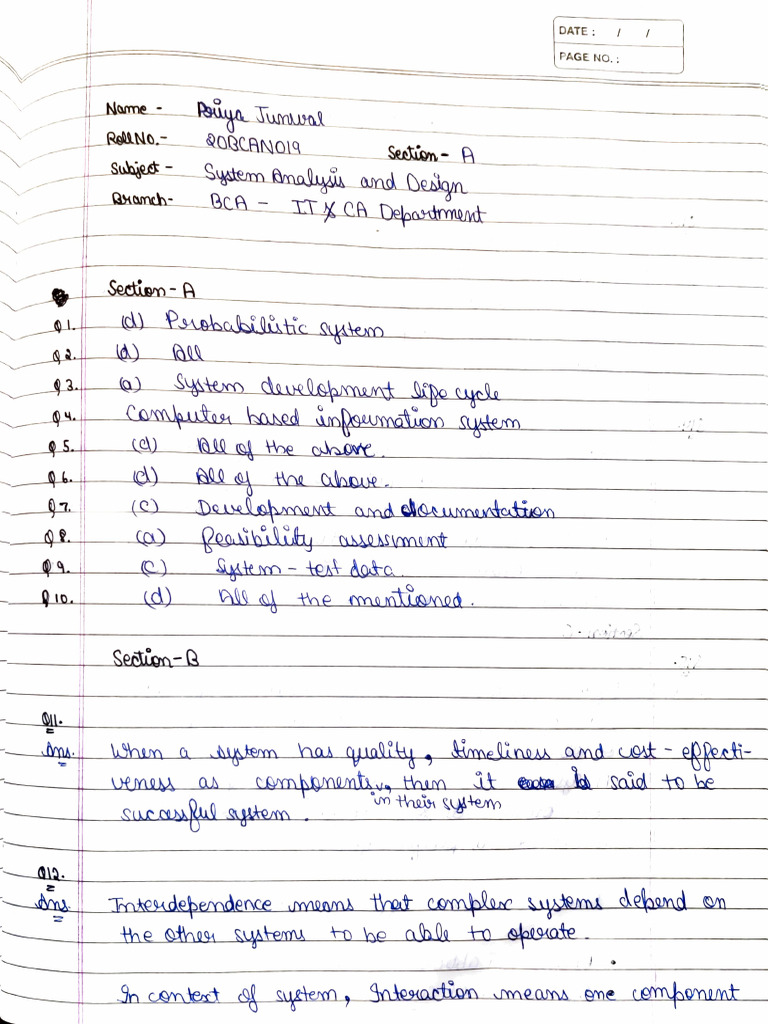 DATE : / /
PAGE NO. :
Name - Priya Junwal
Roll NO. - 20BCAN019 Section - A
Subject - System Analysis and Design
Branch - BCA - IT & CA Department
Section - A
Q1. (d) Probabilistic system
Q2. (d) All
Q3. (a) System development life cycle
Q4. Computer based information system
Q5. (d) All of the above.
Q6. (d) All of the above.
Q7. (c) Development and documentation
Q8. (a) feasibility assessment
Q9. (c) System - test data
Q10. (d) All of the mentioned.
Section - B
Q11.
Ans. When a system has quality, timeliness and cost - effecti-
veness as components, then it is said to be
in their system
successful system.
Q12.
Ans Interdependence means that complex systems depend on
the other systems to be able to operate.
In context of system, Interaction means one component